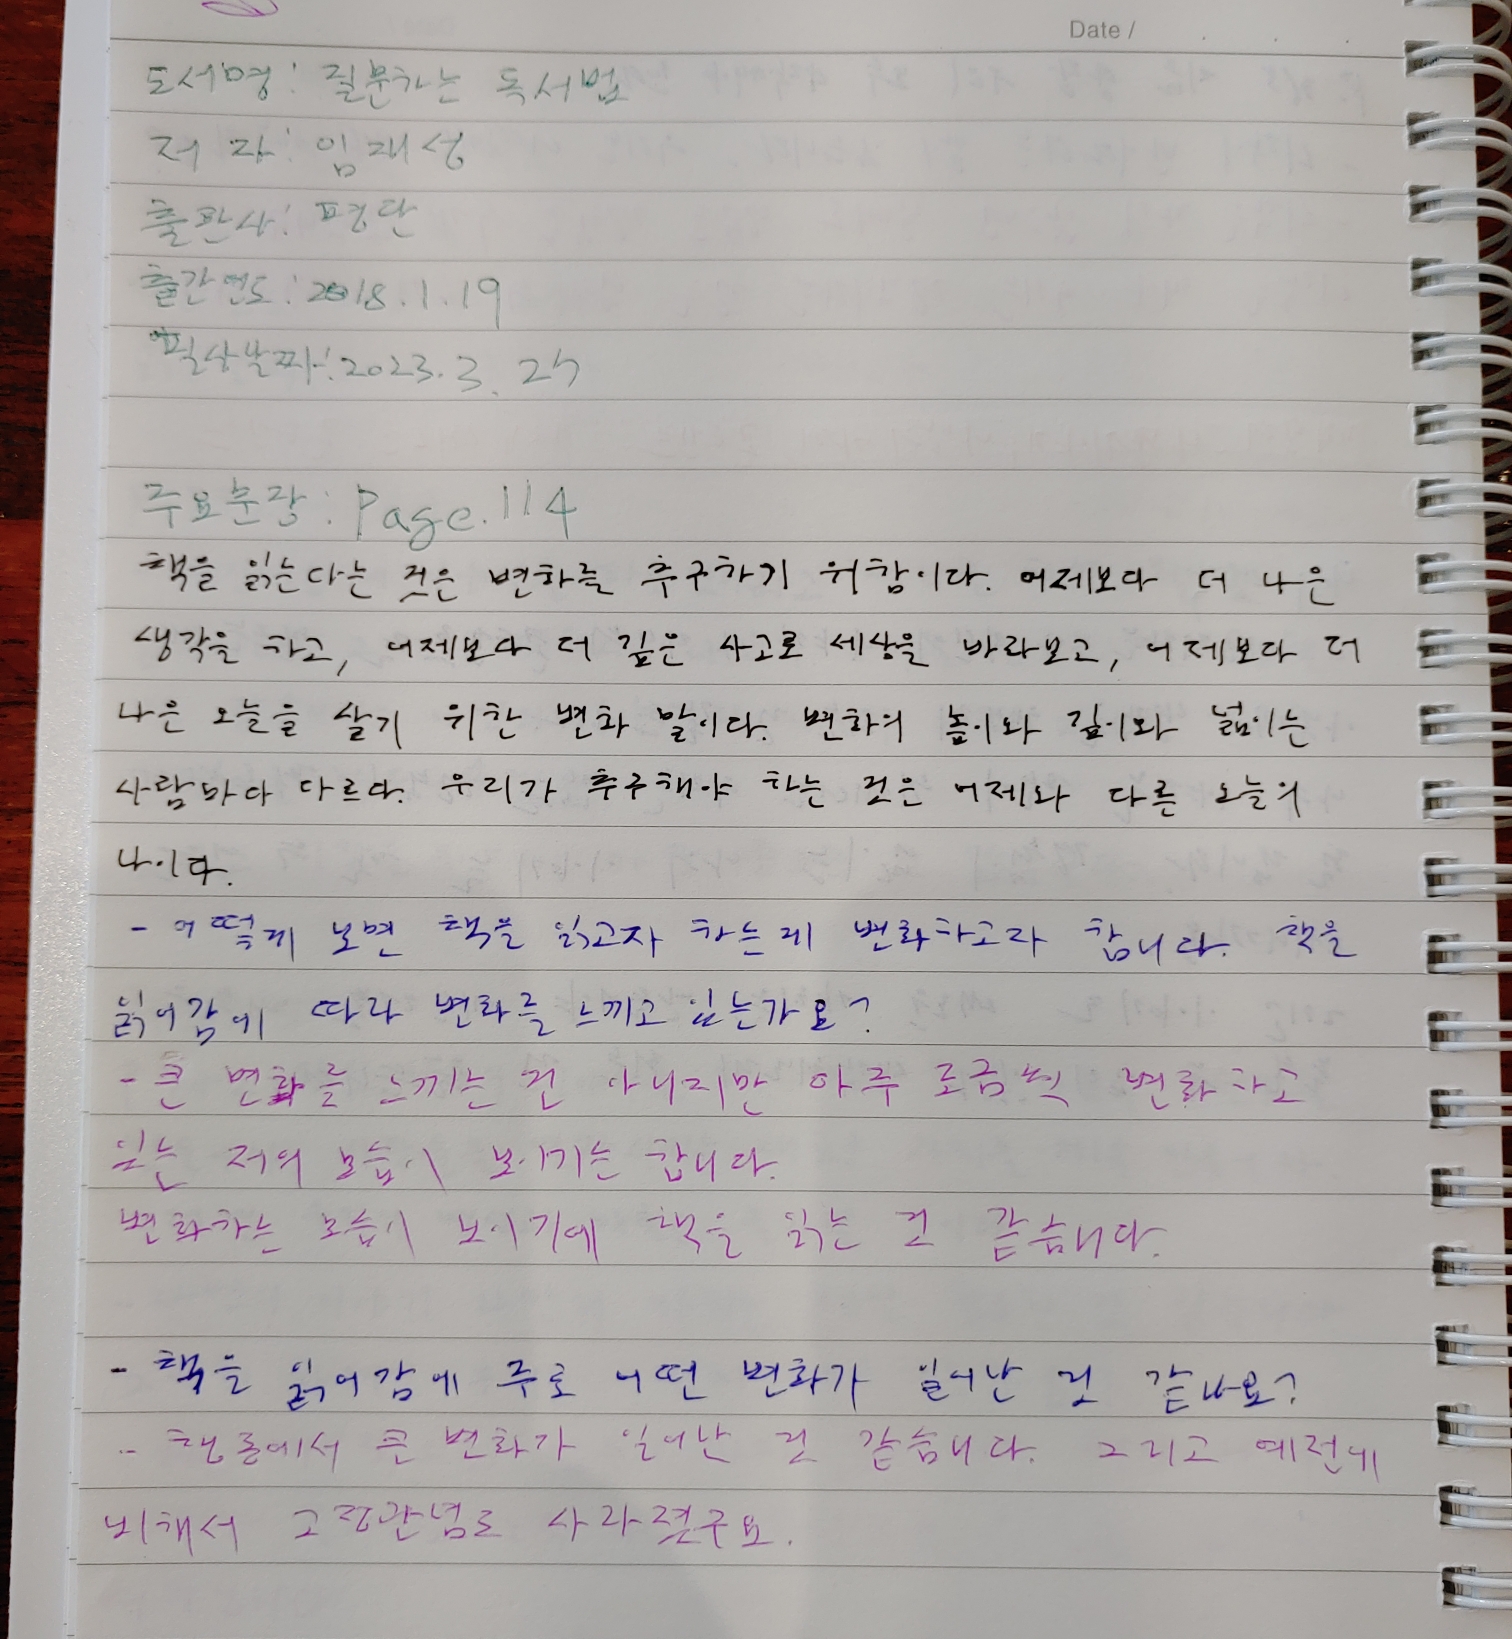 Date /
도서명 : 질문하는 독서법
저 자 : 임재성
출판사 : 평단
출간연도 : 2018.1.19
필사날짜 : 2023.3.25
주요문장 : Page.114
책을 읽는다는 것은 변화를 추구하기 위함이다. 어제보다 더 나은
생각을 하고, 어제보다 더 깊은 사고로 세상을 바라보고, 어제보다 더
나은 오늘을 살기 위한 변화 말이다. 변화의 높이와 깊이와 넓이는
사람마다 다르다. 우리가 추구해야 하는 것은 어제와 다른 오늘의
나이다.
- 어떻게 보면 책을 읽고자 하는게 변화하고자 합니다. 책을
읽어감에 따라 변화를 느끼고 있는가요?
- 큰 변화를 느끼는 건 아니지만 아주 조금씩 변화하고
있는 저의 모습이 보이기는 합니다.
변화하는 모습이 보이기에 책을 읽는 것 같습니다.
- 책을 읽어감에 주로 어떤 변화가 일어난 것 같나요?
- 행동에서 큰 변화가 일어난 것 같습니다. 그리고 예전에
비해서 고정관념도 사라졌구요.